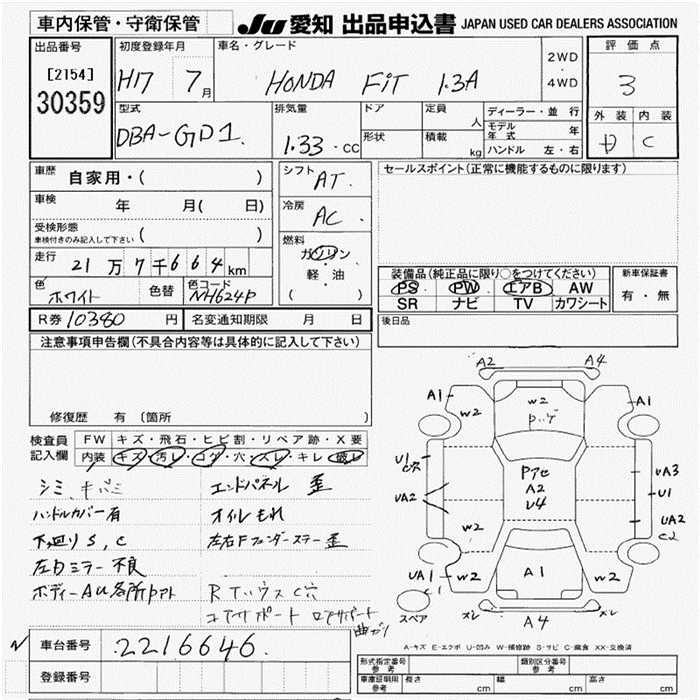 車内保管・守衛保管
JU 愛知 出品申込書 JAPAN USED CAR DEALERS ASSOCIATION
出品番号
[2154]
30359
初度登録年月
H17 7月
車名・グレード
HONDA FiT 1.3A
2WD
・
4WD
評価点
3
外装 内装
D C
型式
DBA-GD1.
排気量
1.33・cc
ドア
形状
定員
人
積載
kg
ディーラー・並行
モデル年式 年
ハンドル 左・右
車歴
自家用・( )
車検
年 月( 日)
受検形態
車検付きのみ記入して下さい ( )
走行
21万7千664km
色
ホワイト
色替
色コード
NH624P
シフト
AT.
冷房
AC
燃料
ガソリン
・
軽・油
( )
セールスポイント(正常に機能するものに限ります)
装備品(純正品に限り○をつけてください)
PS PW エアB AW
SR ナビ TV カワシート
新車保証書
有・無
R券 10380 円
名変通知期限 月 日
後日品
注意事項申告欄(不具合内容等は具体的に記入して下さい)
修復歴 有 〔箇所 〕
検査員記入欄
FW キズ・飛石・ヒビ割・リペア跡・X要
内装 キズ・汚レ・コゲ・穴・スレ・キレ・破レ
シミ、キバミ
ハンドルカバー有
下廻りS,C
左ドミラー不良
エンドパネル 歪
オイルもれ
左右Fフェンダーステー歪
A2 A4
A1 W2 W2 A1
U1 Pアセ UA3
C穴 A2 U1
UA2 U4 UA2
W2 C2
UA1 W2 A1 W2
C1
スペア スレ A4 スレ
A-キズ E-エクボ U-凹み W-補修跡 S-サビ C-腐食 XX-交換済
車台番号 2216646.
登録番号
形式指定番号
参考
類別区分番号
参考
車庫証明用
参考
長さ cm 幅 cm 高さ cm